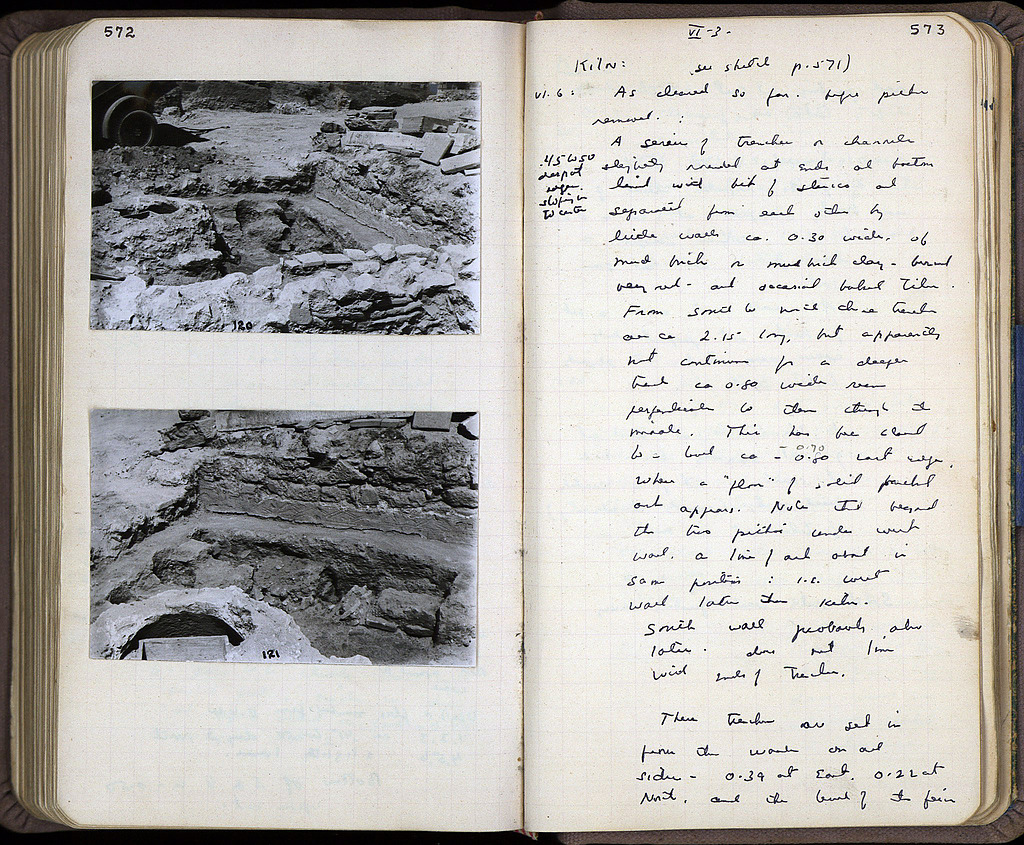 572
120
121
VI-3-
573
Kiln: see sketch p. 571)
VI. 6: As cleared so far.
removed.
A series of trenches or channels
.45 to 50
deep at
edges
sloping in
to center
slightly rounded at ends and bottom
lined with bits of and
separated from each other by
little walls ca. 0.30 wide. of
mud brick or mud brick clay - burned
very red - and occasional baked tiles.
From south to north these trenches
are ca 2.15 long, but apparently
not continuous for a deeper
trench ca 0.80 wide runs
perpendicular to them through the
middle. This has been cleared
to - level ca - 0.70 0.80 east edge,
where a "floor" of solid
ash appears. Note that beyond
the two under west
wall, a line of ash about in
same position: i.e. west
wall later than kiln.
South wall probably also
later. does not line
with ends of trenches.
These trenches are set in
from the walls on all
sides - 0.39 at East. 0.22 at
North, and the level of the